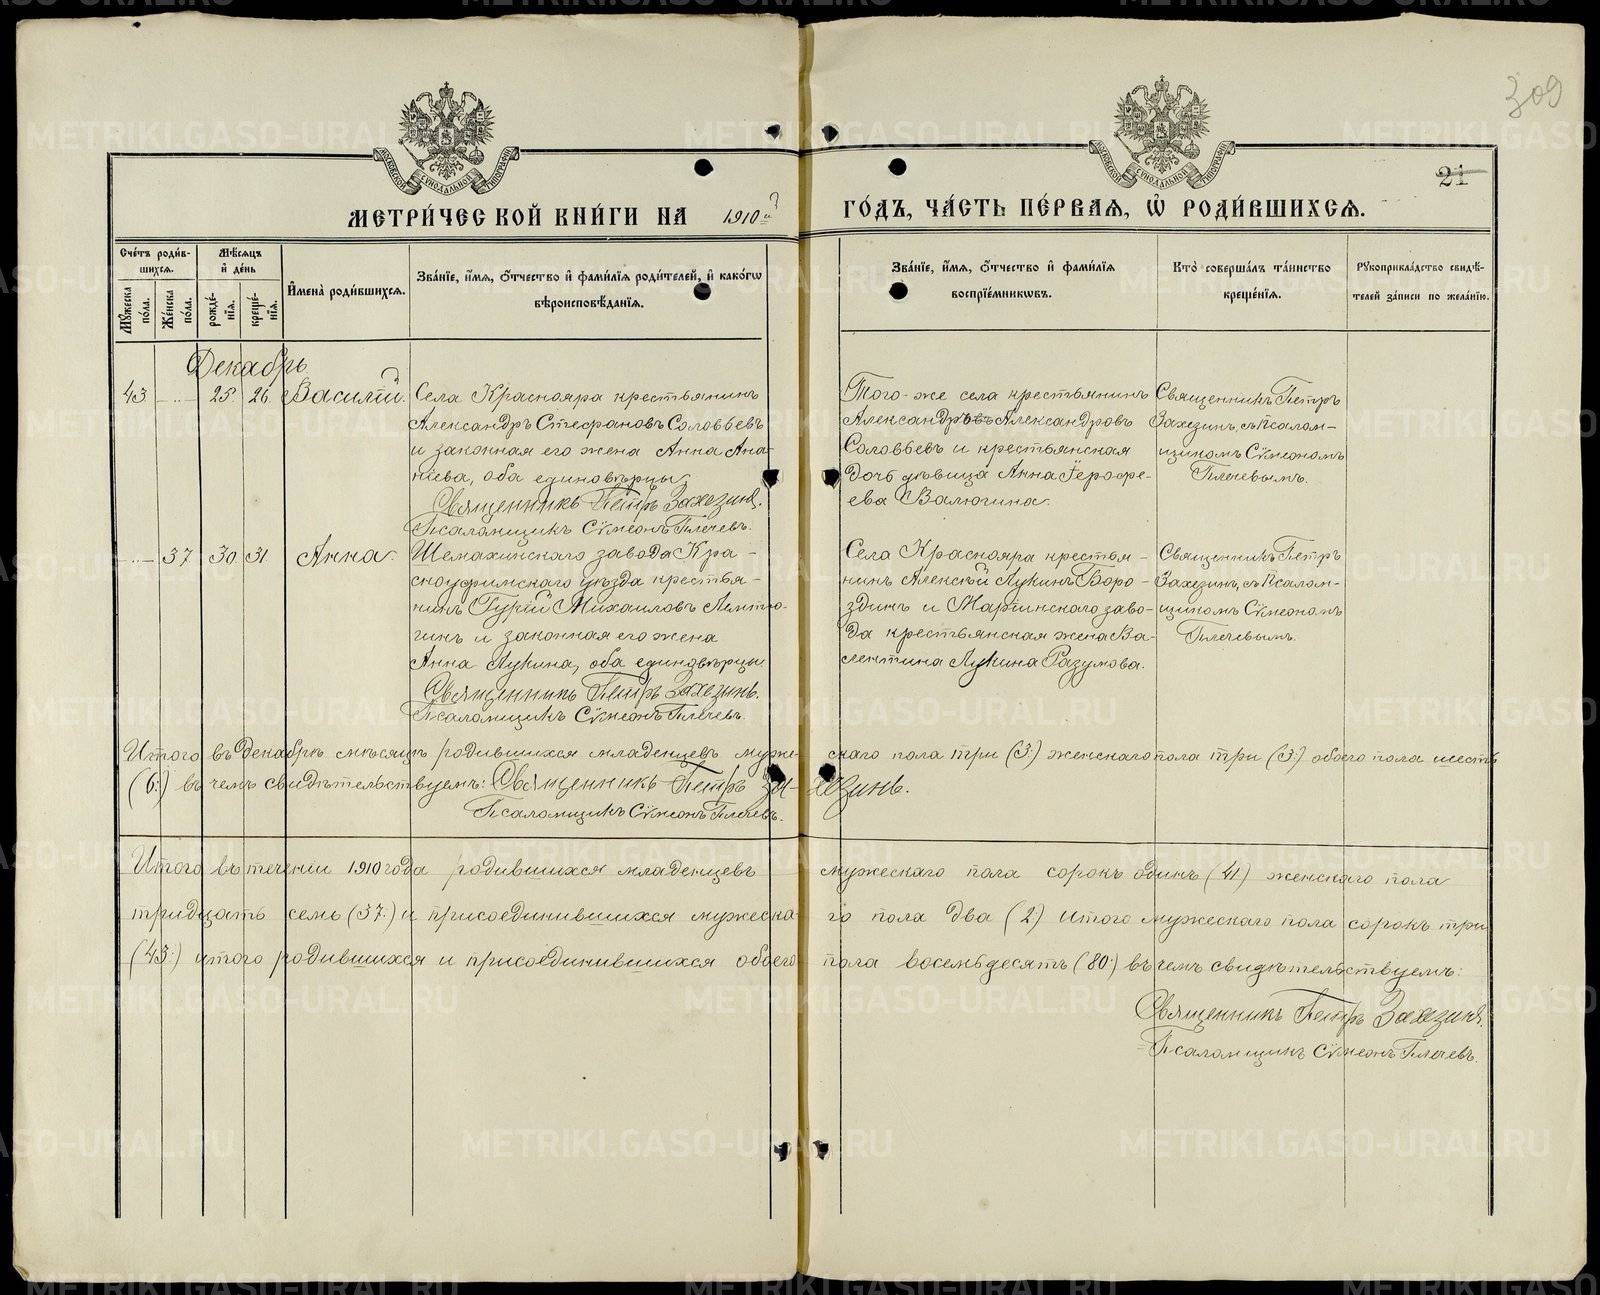 309
21
МОСКОВСКОЙ СѴНОДАЛЬНОЙ ТИПОГРАФІИ
МОСКОВСКОЙ СѴНОДАЛЬНОЙ ТИПОГРАФІИ
МЕТРИ́ЧЕСКОЙ КНИ́ГИ НА 1910й
ГО́ДЪ, ЧА́СТЬ ПЕ́РВАѦ, Ѡ҆ РОДИ́ВШИХСѦ.
Сче́тъ роди́вшихсѧ.
Мꙋ́жеска по́ла.
Же́нска по́ла.
Мѣ́сѧцъ и҆ де́нь
рожде́нїѧ.
креще́нїѧ.
И҆мена̀ роди́вшихсѧ.
Зва́нїе, и҆́мѧ, ѻ҆́тчество и҆ фами́лїѧ роди́телей, и҆ како́гѡ
вѣроисповѣ́данїѧ.
Зва́нїе, и҆́мѧ, ѻ҆́тчество и҆ фами́лїѧ
воспрїе́мникѡвъ.
Кто̀ соверша́лъ та́инство
креще́нїѧ.
Рꙋкоприкла́дство свидѣ́-
телей за́писи по жела́нїю.
Декабрь
43 -..- 25 26 Василій.
Села Краснояра крестьянинъ
Александръ Стефановъ Соловьевъ
и законная его жена Анна Ана-
ніева, оба единовѣрцы.
Священникъ Петръ Захезинъ.
Псаломщикъ Сѵмеонъ Плечевъ.
Того-же села крестьянинъ
Александръ Александровъ
Соловьевъ и крестьянская
дочь дѣвица Анна Ѳерофе-
ева Валюгина.
Священникъ Петръ
Захезинъ, съ Псалом-
щикомъ Сѵмеономъ
Плечевымъ.
-..- 37 30 31 Анна.
Шемахинскаго завода Кра-
сноуфимскаго уѣзда крестья-
нинъ Гурій Михаиловъ Лептю-
гинъ и законная его жена
Анна Лукина, оба единовѣрцы
Священникъ Петръ Захезинъ.
Псаломщикъ Сѵмеонъ Плечевъ.
Села Краснояра крестья-
нинъ Алексѣй Лукинъ Боро-
здинъ и Маріинскаго заво-
да крестьянская жена Ва-
лентина Лукина Разумова.
Священникъ Петръ
Захезинъ, съ Псалом-
щикомъ Сѵмеономъ
Плечевымъ.
Итого въ декабрѣ мѣсяцѣ родившихся младенцевъ муже-скаго пола три (3:) женскаго пола три (3:) обоего пола шесть
(6:) въ чемъ свидѣтельствуемъ: Священникъ Петръ За-хезинъ.
Псаломщикъ Сѵмеонъ Плечевъ.
Итого въ теченіи 1910 года родившихся младенцевъ мужескаго пола сорокъ одинъ (41) женскаго пола
тридцать семь (37:) и присоединившихся мужеска-го пола два (2) итого мужескаго пола сорокъ три
(43:) итого родившихся и присоединившихся обоего пола восемьдесятъ (80:) въ чемъ свидѣтельствуемъ:
Священникъ Петръ Захезинъ.
Псаломщикъ Сѵмеонъ Плечевъ.
METRIKI.GASO-URAL.RU